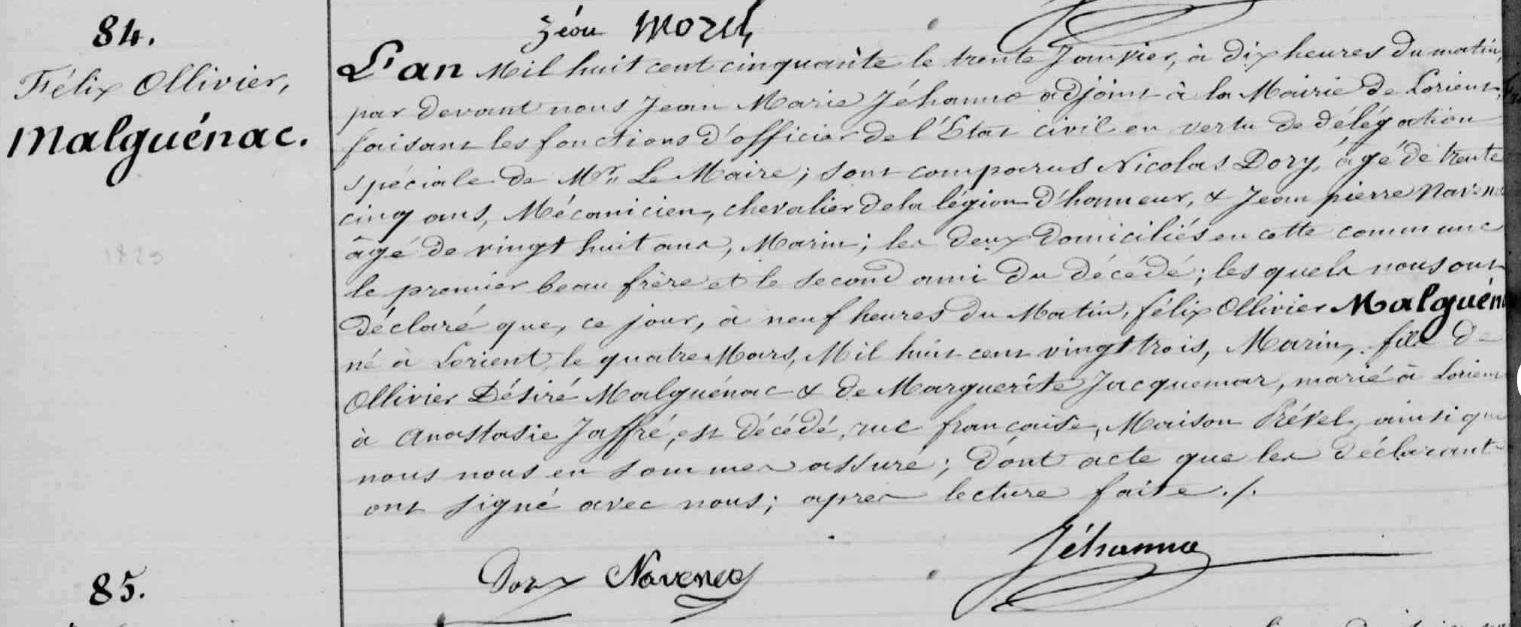 84.
Félix Ollivier,
Malguénac.
L'an Mil huit cent cinquante le trente Janvier, à dix heures du matin,
par devant nous Jean Marie Jéhanno adjoint à la Mairie de Lorient,
faisant les fonctions d'officier de l'Etat civil en vertu de délégation
spéciale de Mr. Le Maire; sont comparus Nicolas Dory, âgé de trente
cinq ans, Mécanicien, chevalier de la légion d'honneur, & Jean pierre
âgé de vingt huit ans, Marin; les deux domiciliés en cette commune
le premier beau frère et le second ami du décédé; les quels nous ont
déclaré que, ce jour, à neuf heures du Matin, félix Ollivier Malguén
né à Lorient, le quatre Mars, Mil huit cent vingt trois, Marin, fils de
Ollivier Désiré Malguénac & de Marguerite Jacquemar, marié à Lorient
à Anastasie Jaffré, est décédé, rue française, Maison Prével, ainsi que
nous nous en sommes assuré; dont acte que les déclarant
ont signé avec nous; après lecture faite./.
Dory Navenec Jéhanno
85.